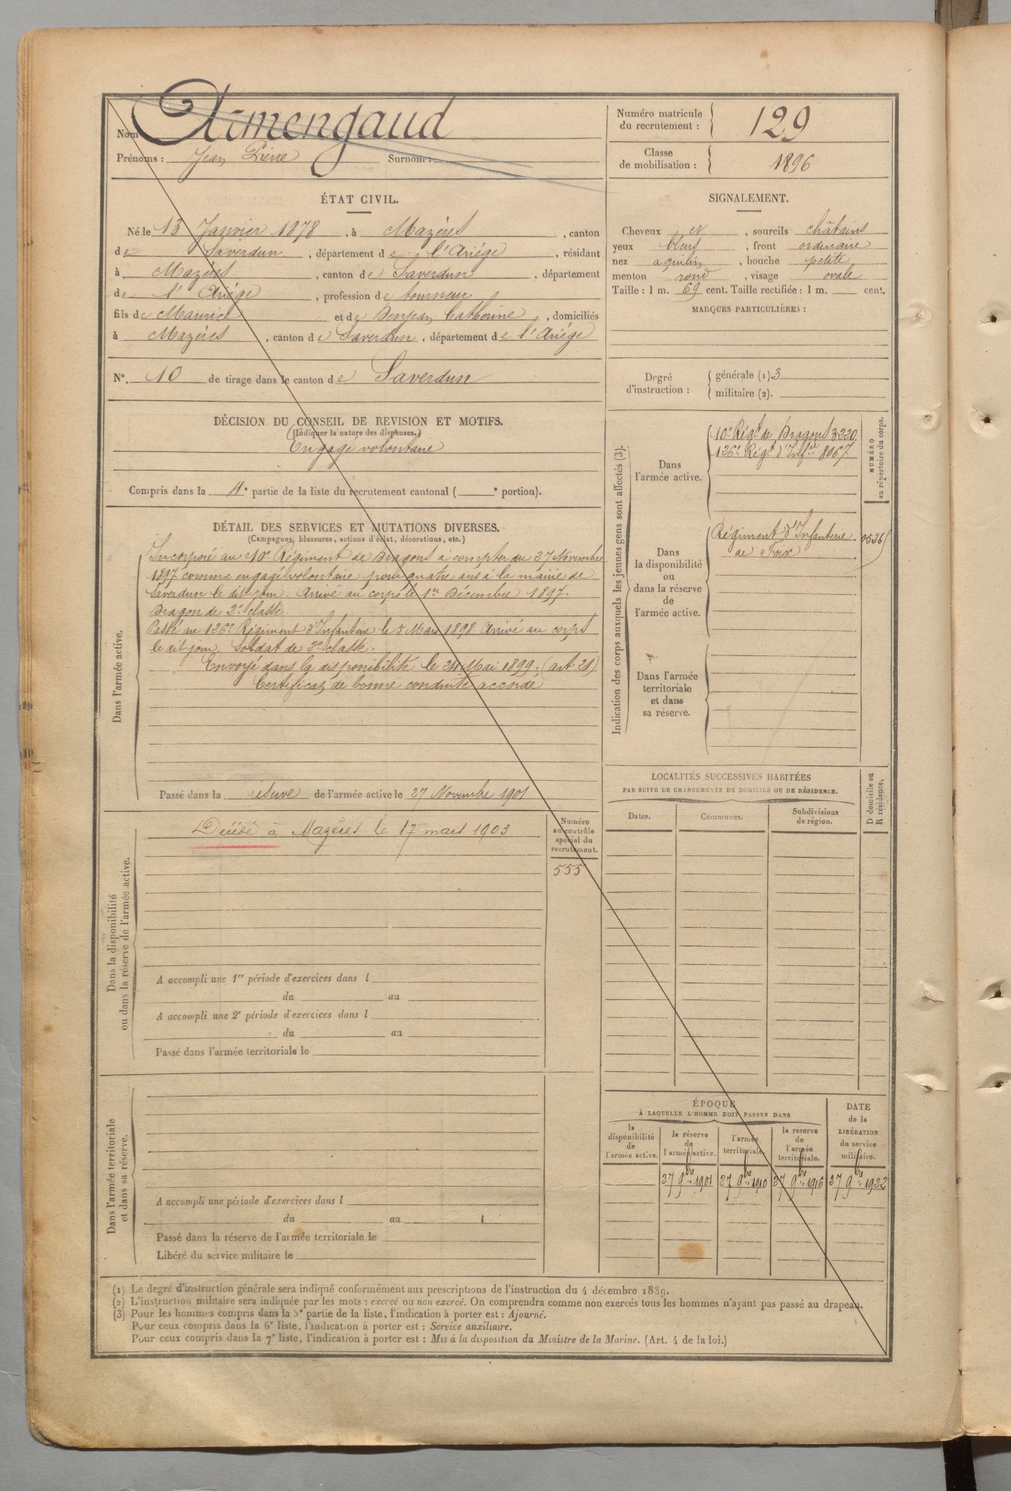 Nom Armengaud
Prénoms : Jean Pierre Surnom :
Numéro matricule du recrutement : 129
Classe de mobilisation : 1896
ÉTAT CIVIL.
Né le 13 Janvier 1878, à Mazères, canton
de Saverdun, département de l'Ariège, résidant
à Mazères, canton de Saverdun, département
de l'Ariège, profession de tourneur
fils de Maurice et de Bonjean Catherine, domiciliés
à Mazères, canton de Saverdun, département de l'Ariège
N° 10 de tirage dans le canton de Saverdun
SIGNALEMENT.
Cheveux et, sourcils châtains
yeux bleus, front ordinaire
nez aquilin, bouche petite
menton rond, visage ovale
Taille : 1 m. 69 cent. Taille rectifiée : 1 m. cent.
MARQUES PARTICULIÈRES :
Degré d'instruction : générale (1) 3
militaire (2).
DÉCISION DU CONSEIL DE REVISION ET MOTIFS.
(Indiquer la nature des dispenses.)
Engagé volontaire
Compris dans la 4e partie de la liste du recrutement cantonal ( e portion).
DÉTAIL DES SERVICES ET MUTATIONS DIVERSES.
(Campagnes, blessures, actions d'éclat, décorations, etc.)
Dans l'armée active.
Incorporé au 10e Régiment de Dragons à compter du 27 Novembre
1897 comme engagé volontaire pour quatre ans à la mairie de
Saverdun le dit jour. Arrivé au corps le 1er Décembre 1897.
Dragon de 2e classe.
Passé au 126e Régiment d'Infanterie le 5 Mai 1898 Arrivé au corps
le dit jour. Soldat de 2e classe.
Envoyé dans la disponibilité le 24 Mai 1899. (art. 21)
Certificat de bonne conduite accordé
Passé dans la réserve de l'armée active le 27 Novembre 1901
Dans la disponibilité ou dans la réserve de l'armée active.
Décédé à Mazères le 17 mars 1903
Numéro au contrôle spécial du recrutement.
555
A accompli une 1re période d'exercices dans l
du au
A accompli une 2e période d'exercices dans l
du au
Passé dans l'armée territoriale le
Dans l'armée territoriale et dans sa réserve.
A accompli une période d'exercices dans l
du au
Passé dans la réserve de l'armée territoriale le
Libéré du service militaire le
Indication des corps auxquels les jeunes gens sont affectés (3).
NUMÉRO au répertoire du corps.
Dans l'armée active.
10e Régt de Dragons 3220
126e Régt d'Infrie 8067
Dans la disponibilité ou dans la réserve de l'armée active.
Régiment d'Infanterie
de Foix
Dans l'armée territoriale et dans sa réserve.
LOCALITÉS SUCCESSIVES HABITÉES
PAR SUITE DE CHANGEMENTS DE DOMICILE OU DE RÉSIDENCE.
D domicile ou R résidence.
Dates. Communes. Subdivisions de région.
ÉPOQUE
À LAQUELLE L'HOMME DOIT PASSER DANS
la disponibilité de l'armée active.
la réserve de l'armée active.
l'armée territoriale.
la réserve de l'armée territoriale.
DATE de la LIBÉRATION du service militaire.
27 9bre 1901 27 9bre 1910 27 9bre 1916 27 9bre 1922
(1) Le degré d'instruction générale sera indiqué conformément aux prescriptions de l'instruction du 4 décembre 1889.
(2) L'instruction militaire sera indiquée par les mots : exercé ou non exercé. On comprendra comme non exercés tous les hommes n'ayant pas passé au drapeau.
(3) Pour les hommes compris dans la 5e partie de la liste, l'indication à porter est : Ajourné.
Pour ceux compris dans la 6e liste, l'indication à porter est : Service auxiliaire.
Pour ceux compris dans la 7e liste, l'indication à porter est : Mis à la disposition du Ministre de la Marine. (Art. 4 de la loi.)